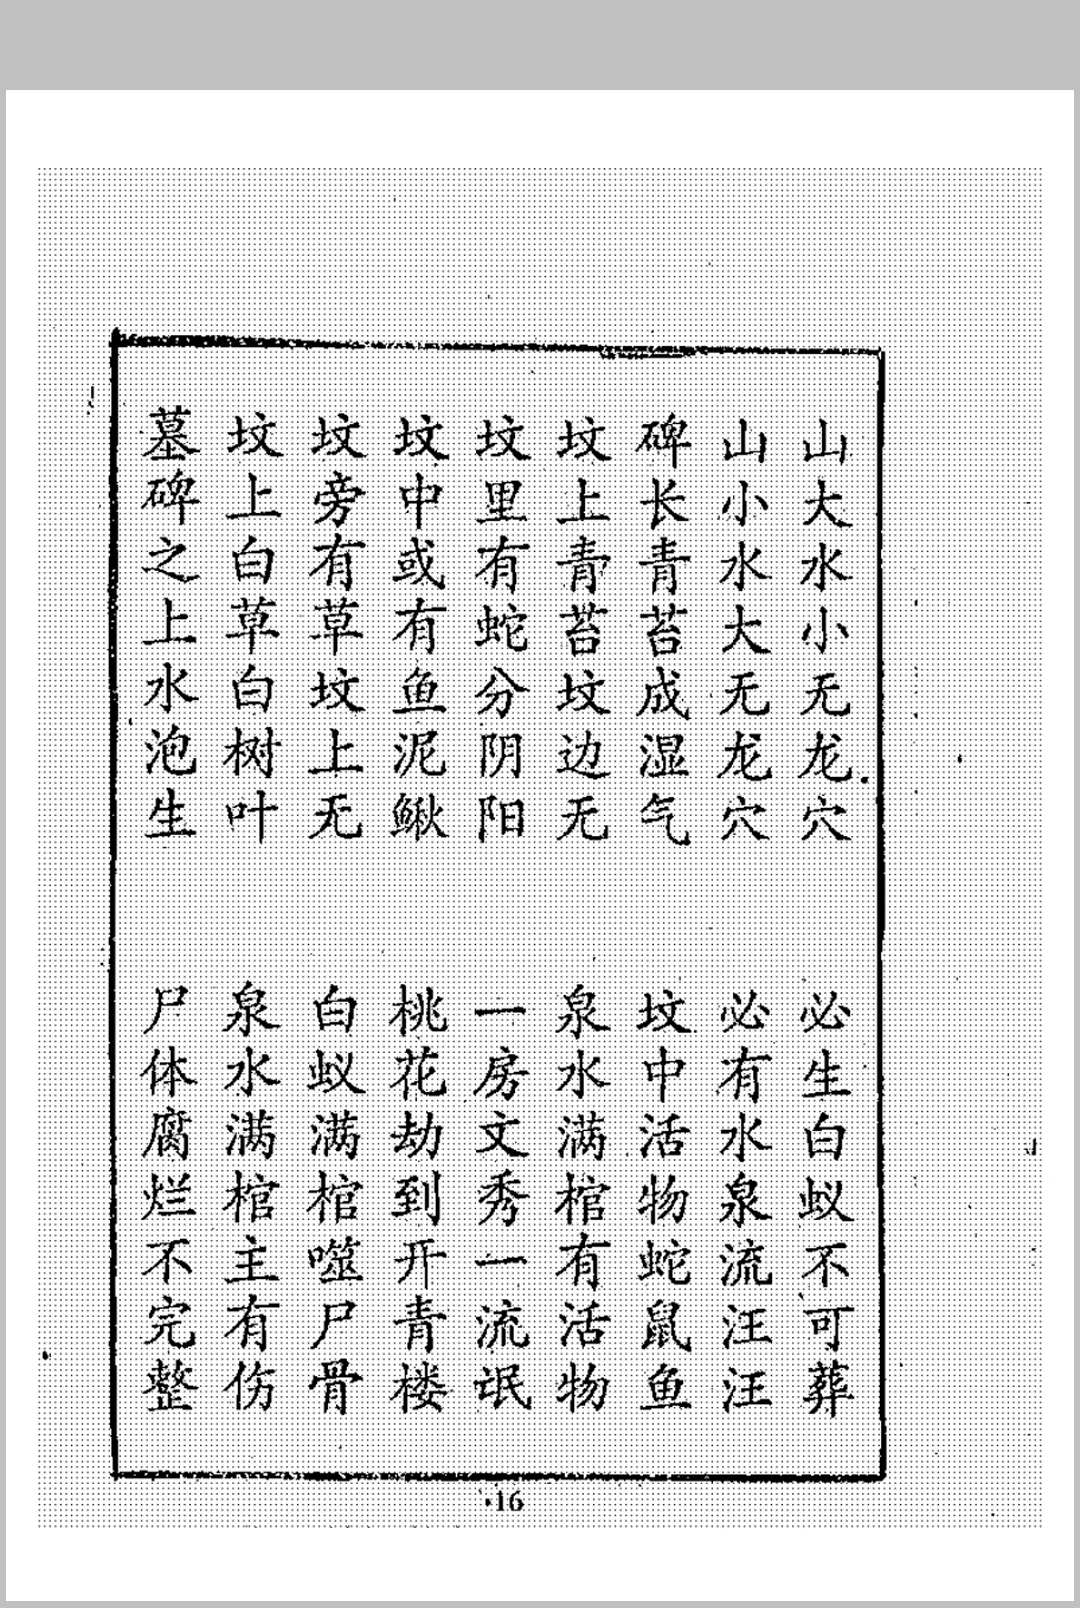 山大水小无龙穴 必生白蚁不可葬
山小水大无龙穴 必有水泉流汪汪
碑长青苔成湿气 坟中活物蛇鼠鱼
坟上青苔坟边无 泉水满棺有活物
坟里有蛇分阴阳 一房文秀一流氓
坟中或有鱼泥鳅 桃花劫到开青楼
坟旁有草坟上无 白蚁满棺噬尸骨
坟上白草白树叶 泉水满棺主有伤
墓碑之上水泡生 尸体腐烂不完整
16